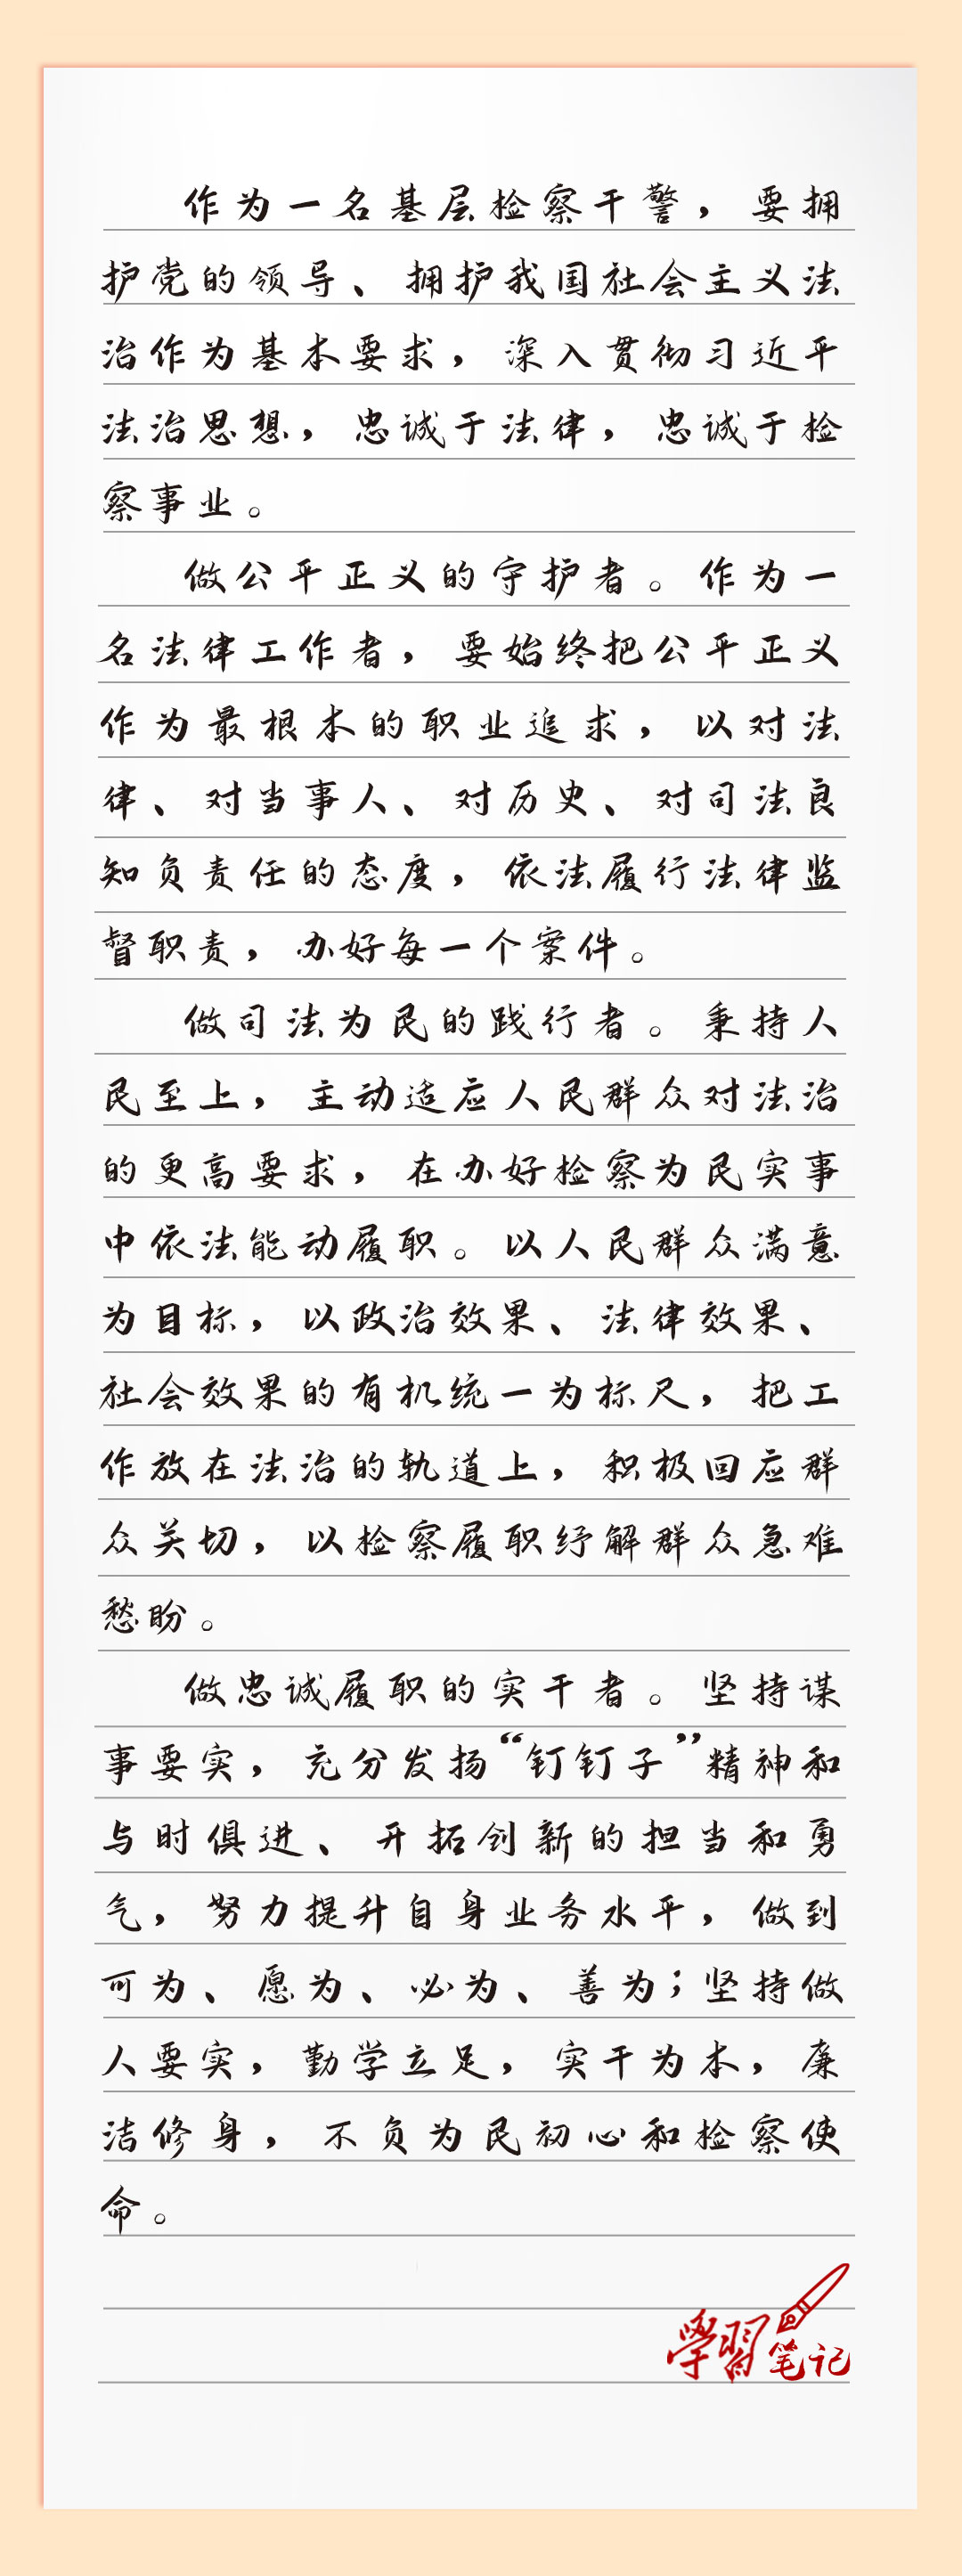 作为一名基层检察干警，要拥
护党的领导、拥护我国社会主义法
治作为基本要求，深入贯彻习近平
法治思想，忠诚于法律，忠诚于检
察事业。
做公平正义的守护者。作为一
名法律工作者，要始终把公平正义
作为最根本的职业追求，以对法
律、对当事人、对历史、对司法良
知负责任的态度，依法履行法律监
督职责，办好每一个案件。
做司法为民的践行者。秉持人
民至上，主动适应人民群众对法治
的更高要求，在办好检察为民实事
中依法能动履职。以人民群众满意
为目标，以政治效果、法律效果、
社会效果的有机统一为标尺，把工
作放在法治的轨道上，积极回应群
众关切，以检察履职纾解群众急难
愁盼。
做忠诚履职的实干者。坚持谋
事要实，充分发扬“钉钉子”精神和
与时俱进、开拓创新的担当和勇
气，努力提升自身业务水平，做到
可为、愿为、必为、善为；坚持做
人要实，勤学立足，实干为本，廉
洁修身，不负为民初心和检察使
命。
學習笔记